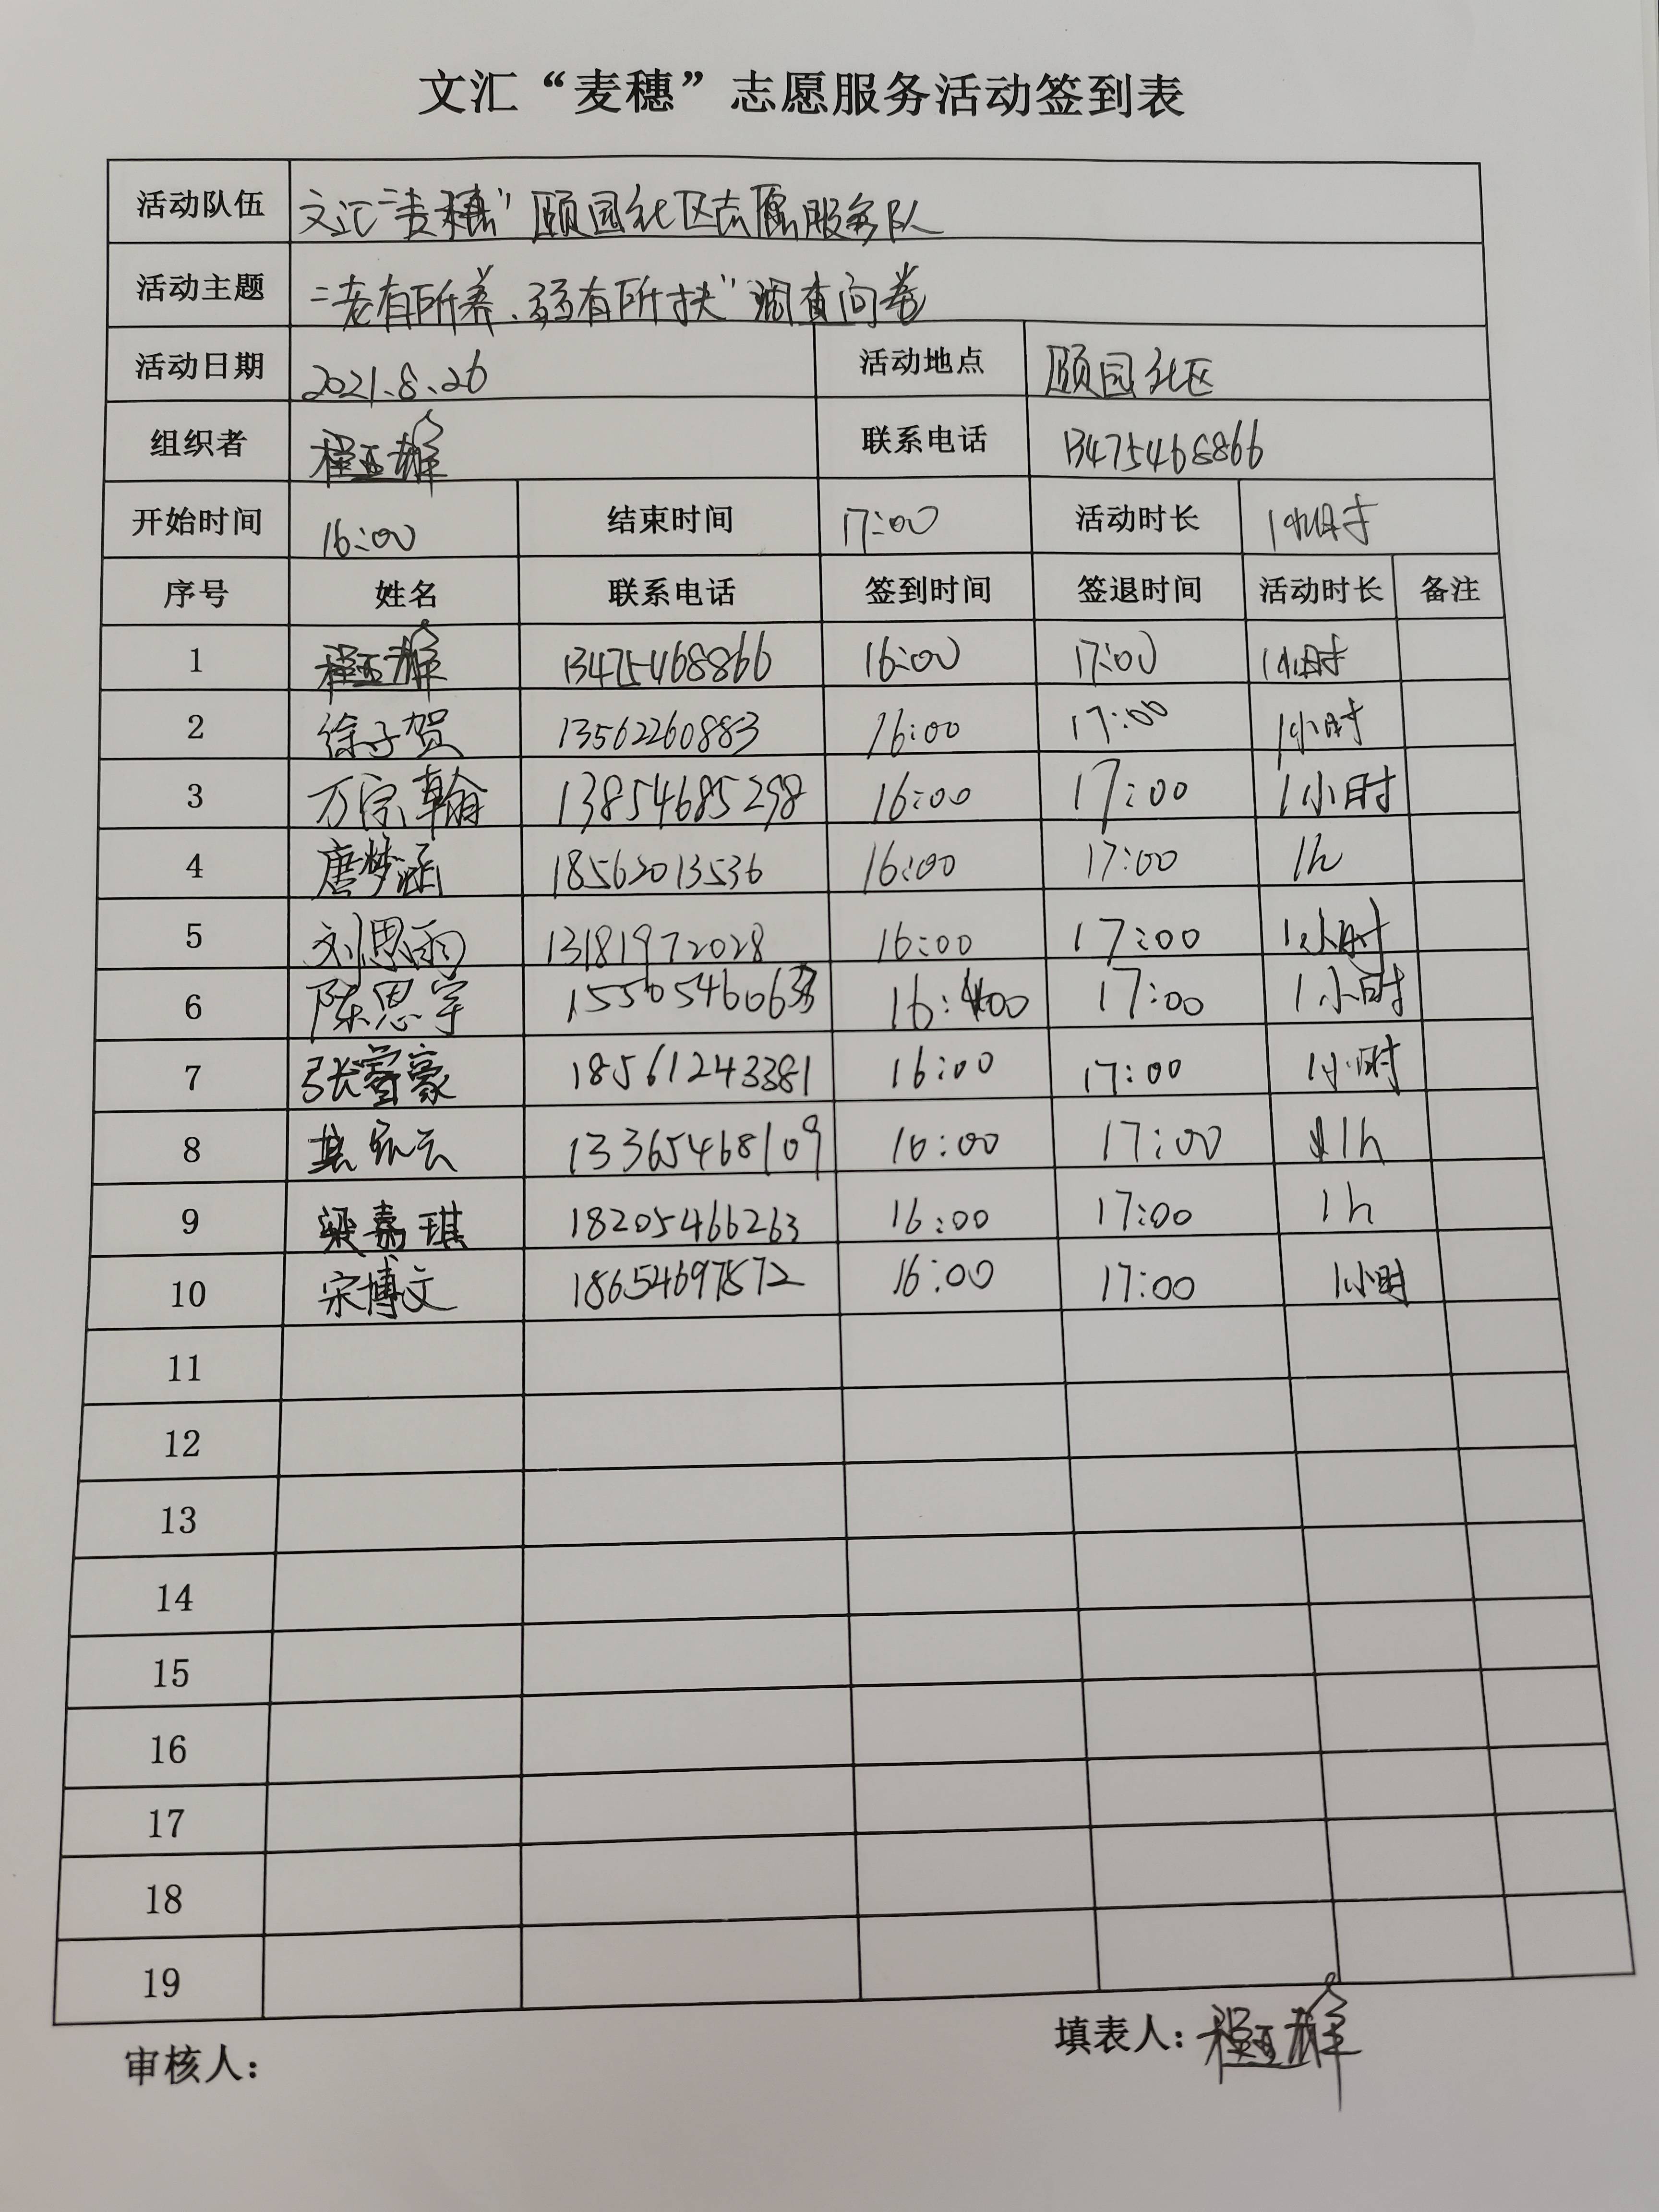 文汇“麦穗”志愿服务活动签到表
活动队伍 文汇“麦穗”颐园社区志愿服务队
活动主题 “老有所养、弱有所扶”调查问卷
活动日期 2021.8.26 活动地点 颐园社区
组织者 联系电话 13475468866
开始时间 16:00 结束时间 17:00 活动时长 1小时
序号 姓名 联系电话 签到时间 签退时间 活动时长 备注
1 13475468866 16:00 17:00 1小时
2 徐子贺 13562260883 16:00 17:00 1小时
3 万宗翰 13854685298 16:00 17:00 1小时
4 唐梦涵 18562013536 16:00 17:00 1h
5 刘思雨 13181972028 16:00 17:00 1小时
6 陈思宇 16:00 17:00 1小时
7 张睿豪 18561243381 16:00 17:00 1小时
8 13365468109 16:00 17:00 1h
9 梁嘉琪 18205466263 16:00 17:00 1h
10 宋博文 18654697572 16:00 17:00 1小时
11
12
13
14
15
16
17
18
19
审核人： 填表人：